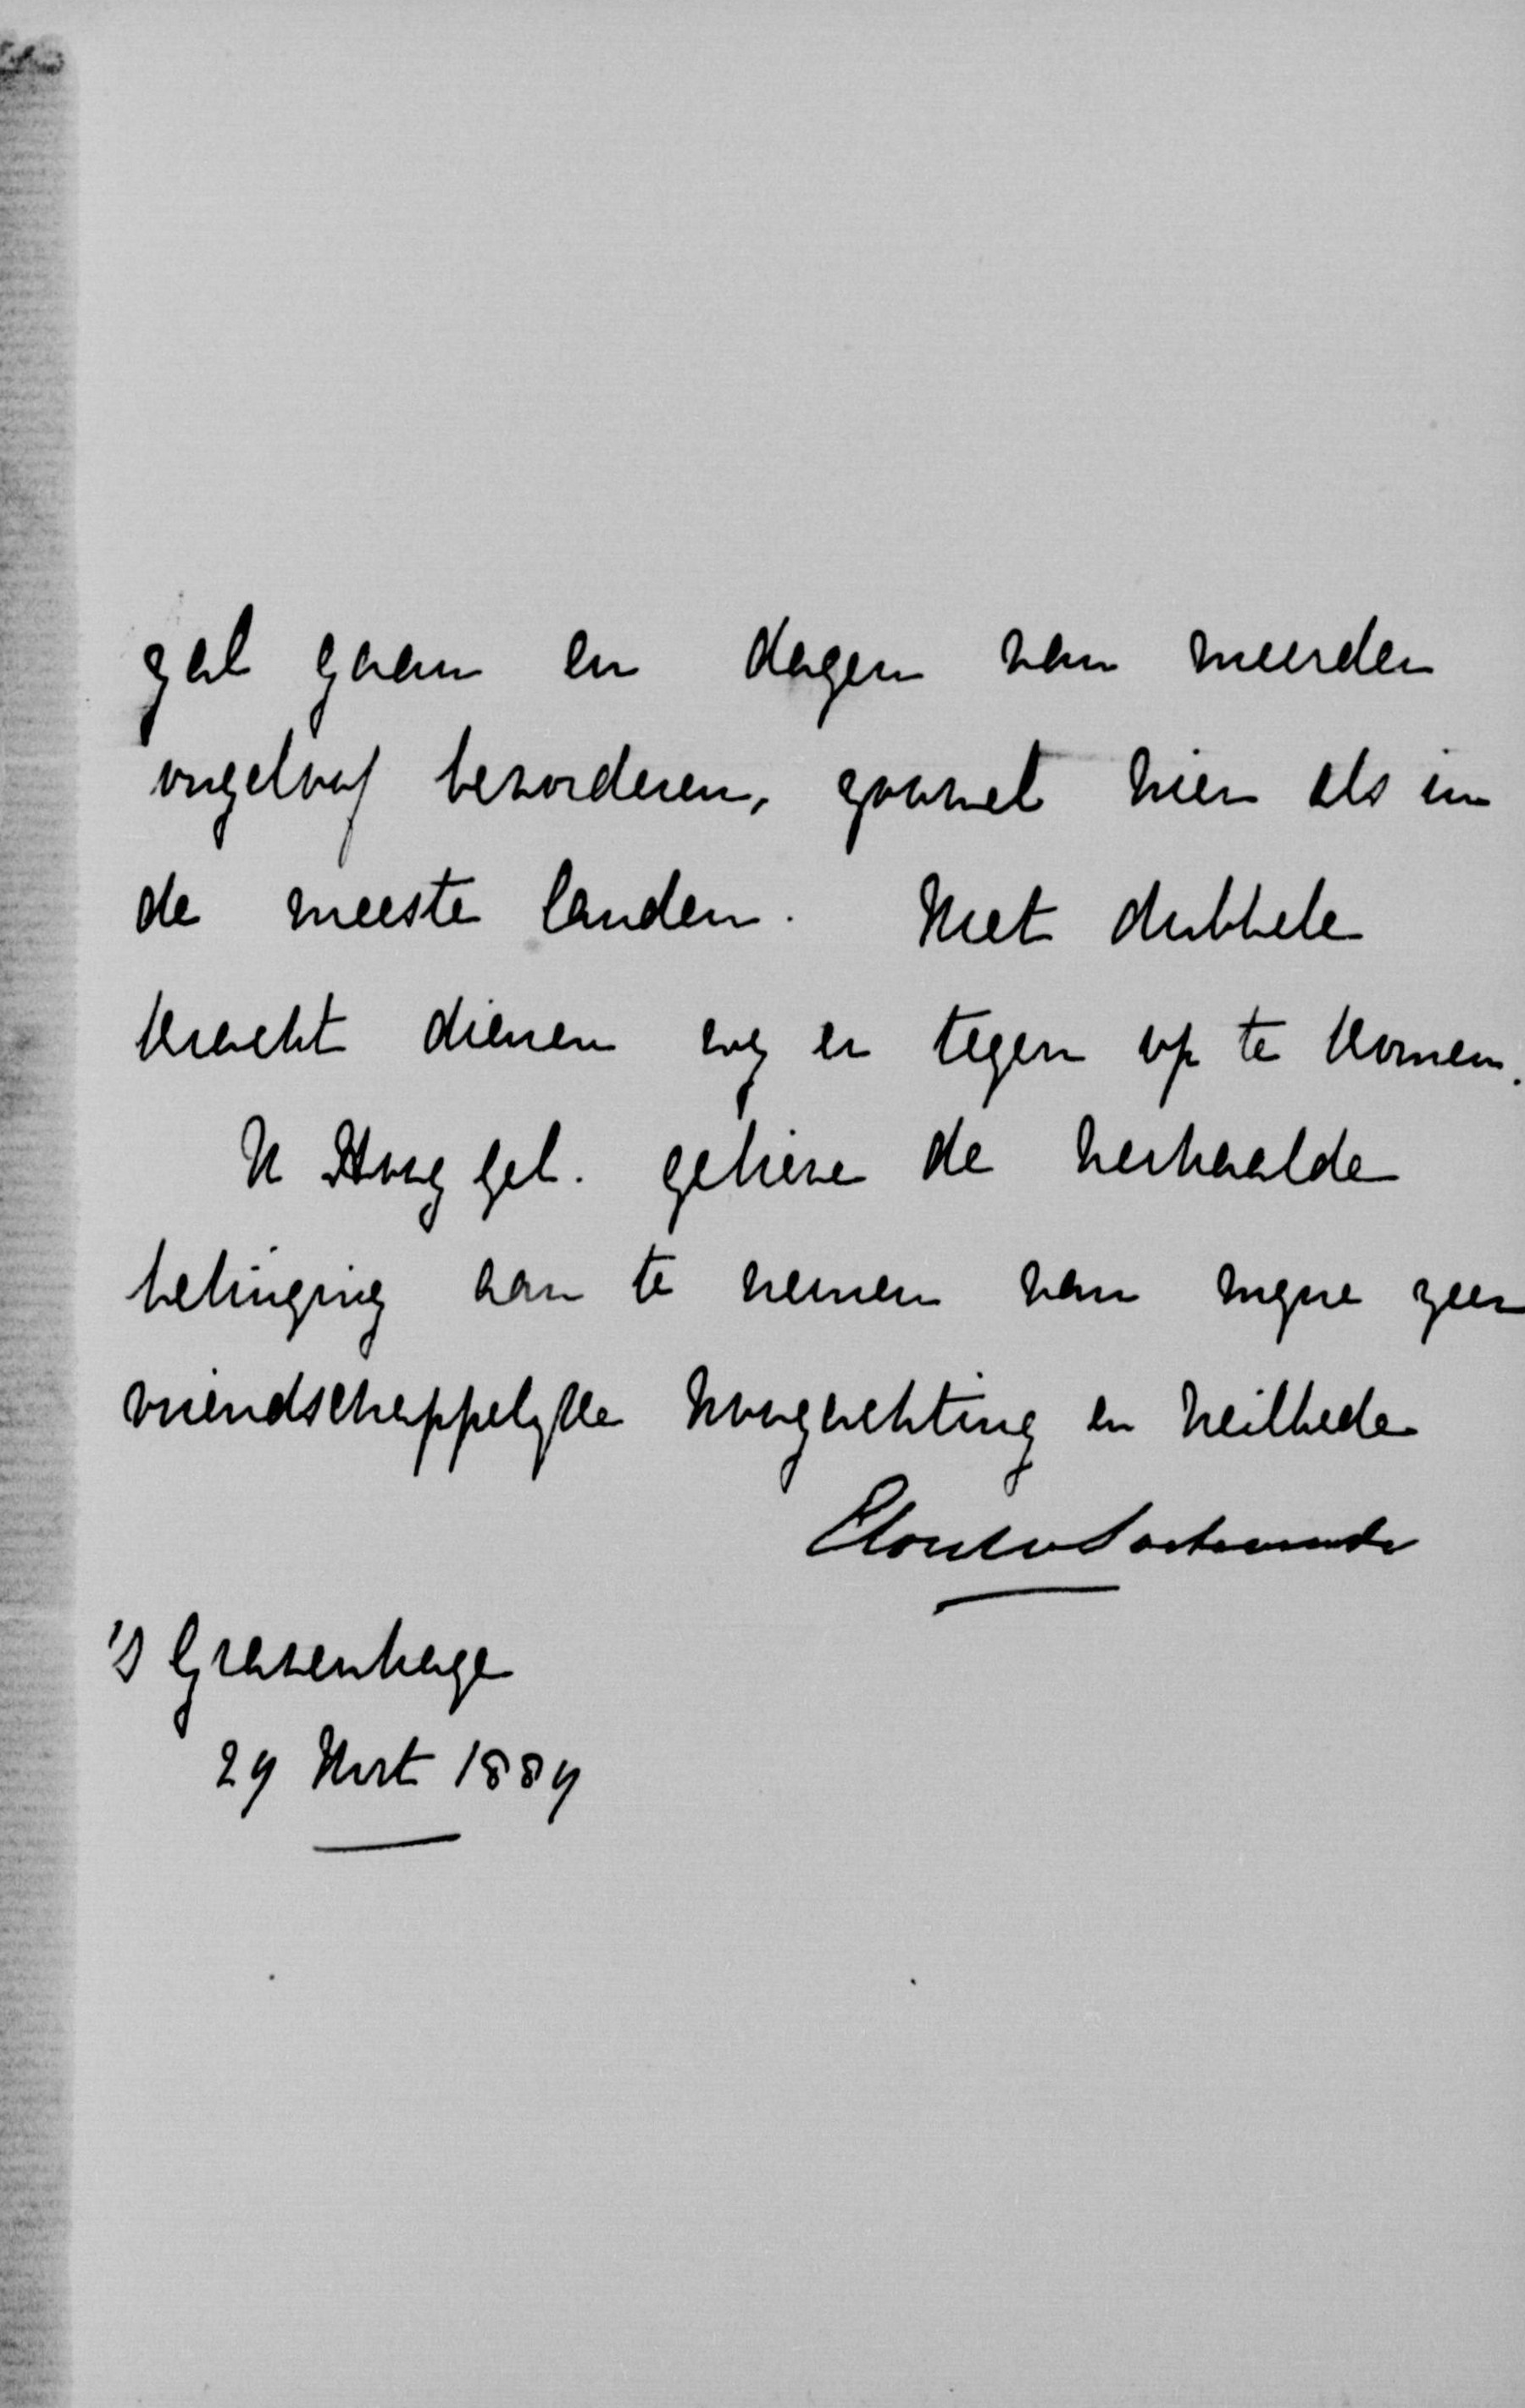 zal gaan en dagen van meerder
ongeloof bevorderen, zoowel hier als in
de meeste landen. Met dubbele
kracht dienen wij er tegen op te komen.
U Hoog gel. gelieve de herhaalde
betuiging aan te nemen van mijne zeer
vriendschappelijke hoogachting en heilbede
Elout v Soeterwoude
's Gravenhage
29 Mrt 1889